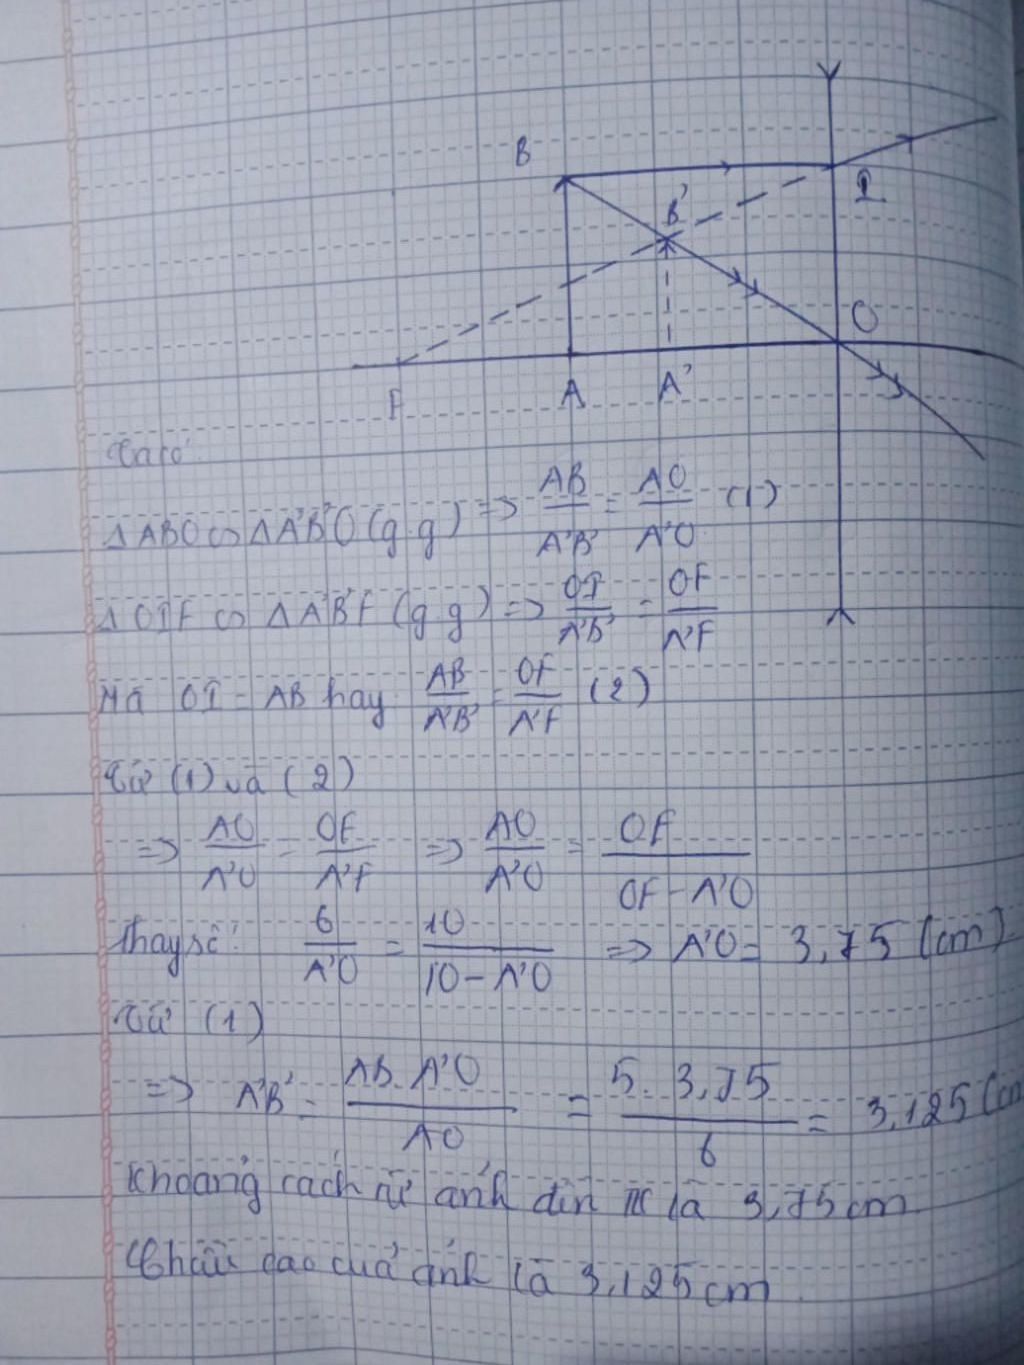 B
B'
I
O
F
A
A'
Ta có:
ΔABO ∽ ΔA'B'O (g.g) => AB/A'B' = AO/A'O (1)
ΔOIF ∽ ΔA'B'F (g.g) => OI/A'B' = OF/A'F
Mà OI = AB hay AB/A'B' = OF/A'F (2)
Từ (1) và (2)
=> AO/A'O = OF/A'F => AO/A'O = OF/OF - A'O
Thay số: 6/A'O = 10/10 - A'O => A'O = 3,75 (cm)
Từ (1)
=> A'B' = AB.A'O/AO = 5.3,75/6 = 3,125 (cm
Khoảng cách từ ảnh đến TK là 3,75 cm
Chiều cao của ảnh là 3,125 cm